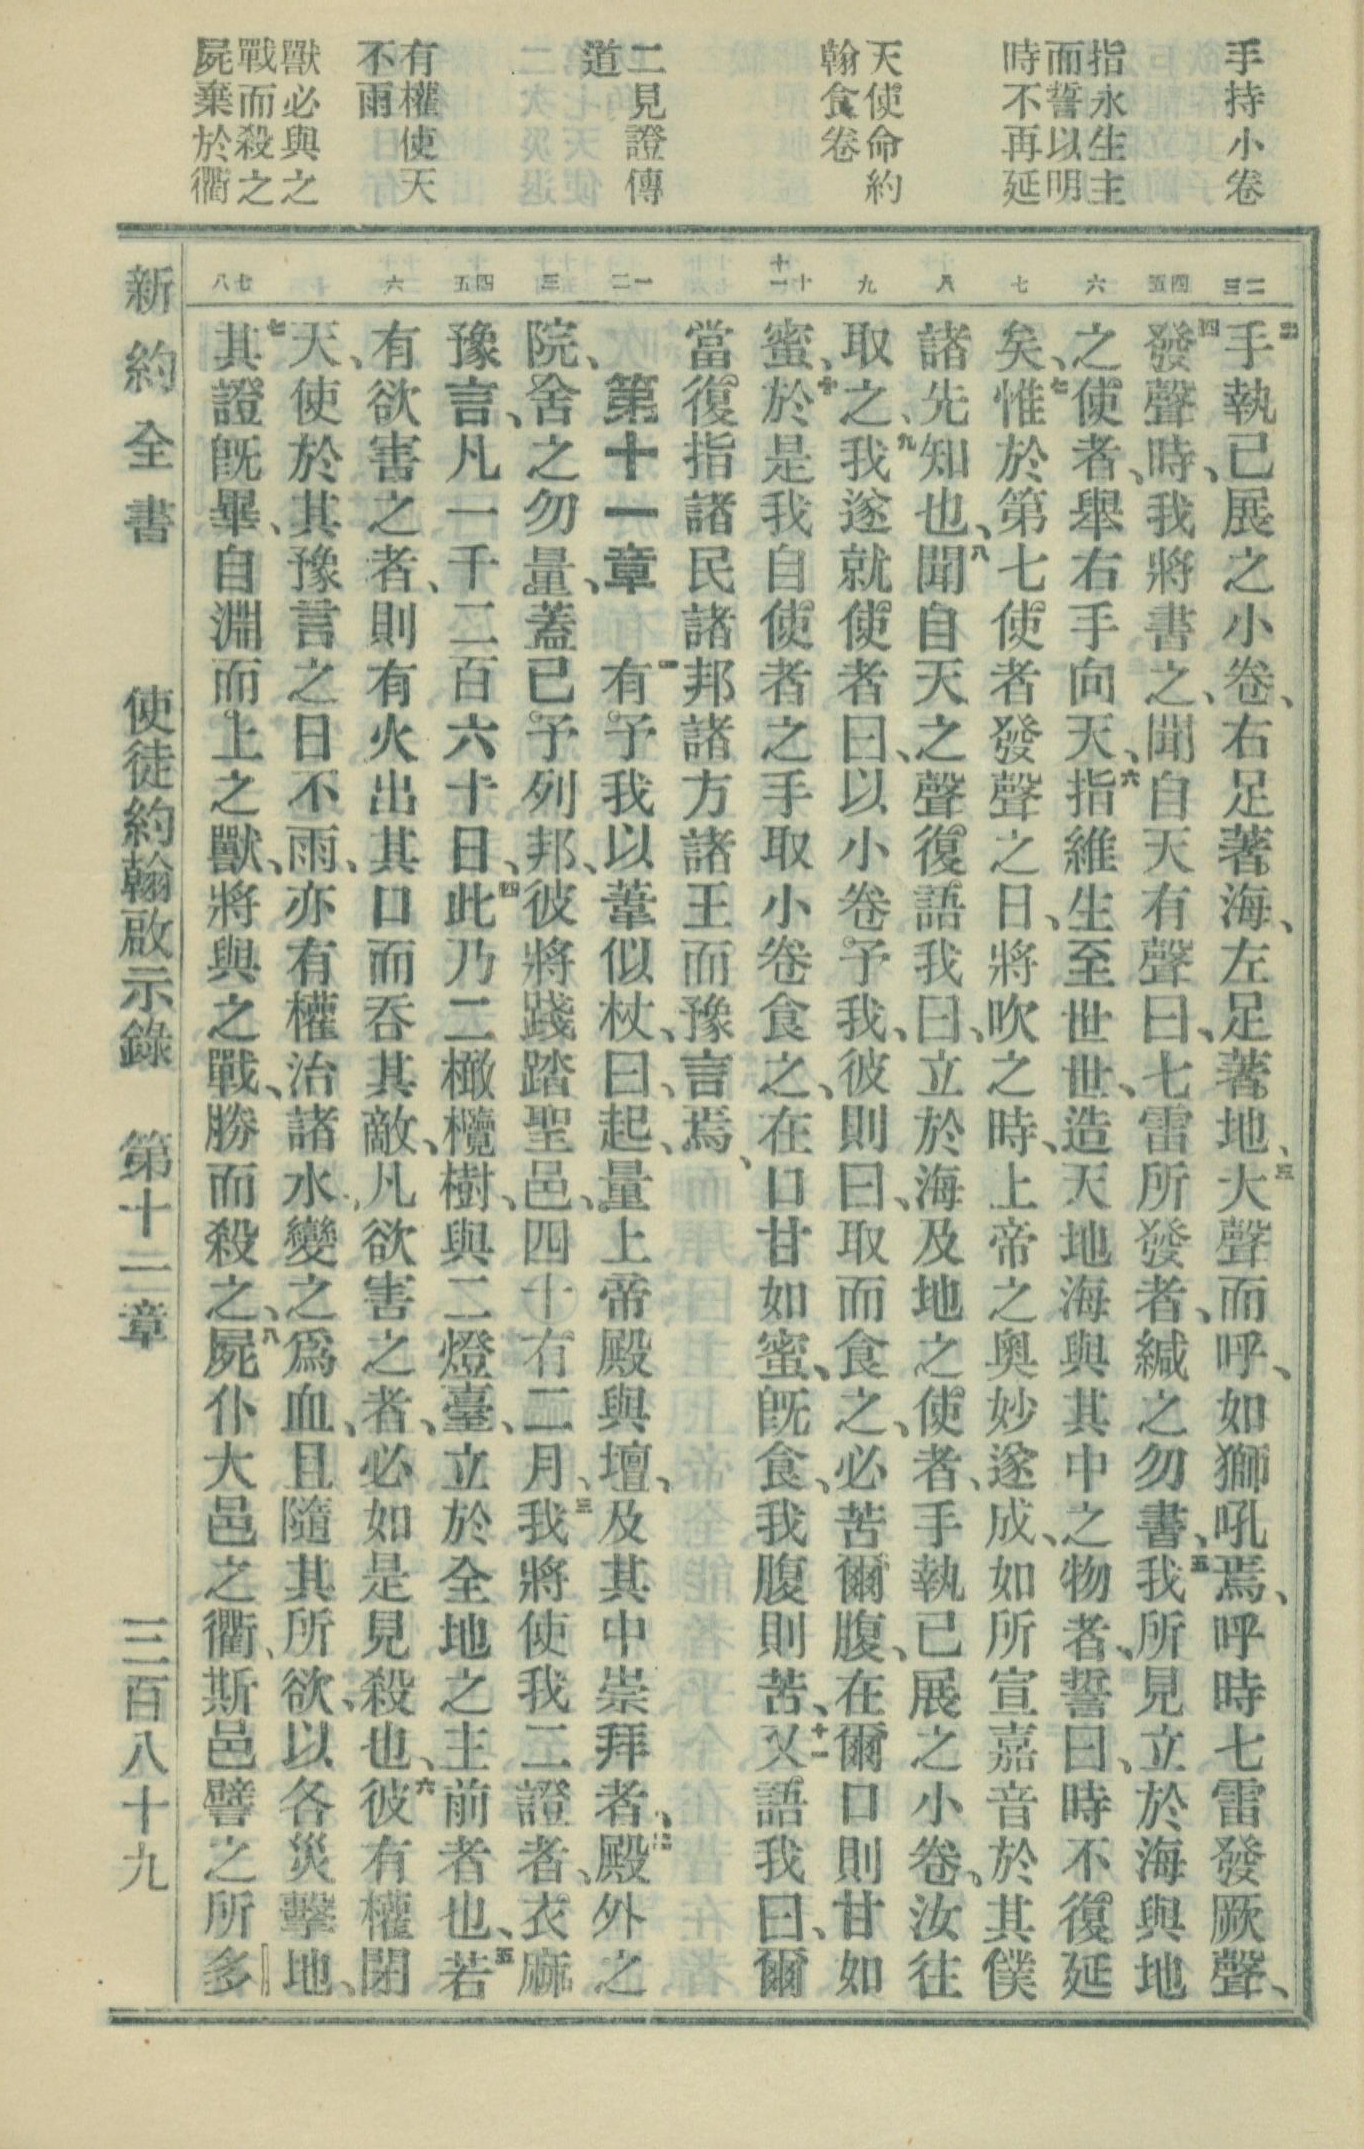 手持小卷
指永生主
而誓以明
時不再延
天使命約
翰食卷
二見證傳
道
有權使天
不雨
獸必與之
戰而殺之
屍棄於衢
二 三 四 五 六 七 八 九 十 十一 一 二 三 四 五 六 七 八
二手執已展之小卷、右足著海、左足著地、三大聲而呼、如獅吼焉、呼時七雷發厥聲、
四發聲時、我將書之、聞自天有聲曰、七雷所發者、緘之勿書、五我所見立於海與地
之使者、舉右手向天、六指維生至世世、造天地海與其中之物者、誓曰、時不復延
矣、七惟於第七使者發聲之日、將吹之時、上帝之奧妙遂成、如所宣嘉音於其僕
諸先知也、八聞自天之聲復語我曰、立於海及地之使者、手執已展之小卷、汝往
取之、九我遂就使者曰、以小卷予我、彼則曰、取而食之、必苦爾腹、在爾口則甘如
蜜、十於是我自使者之手取小卷食之、在口甘如蜜、旣食、我腹則苦、十一又語我曰、爾
當復指諸民諸邦諸方諸王而豫言焉、
第十一章 一有予我以葦似杖、曰、起、量上帝殿與壇、及其中崇拜者、二殿外之
院、舍之勿量、蓋已予列邦、彼將踐踏聖邑、四十有二月、三我將使我二證者、衣麻
豫言、凡一千二百六十日、四此乃二橄欖樹、與二燈臺、立於全地之主前者也、五若
有欲害之者、則有火出其口而吞其敵、凡欲害之者、必如是見殺也、六彼有權閉
天、使於其豫言之日不雨、亦有權治諸水、變之爲血、且隨其所欲、以各災擊地、
七其證旣畢、自淵而上之獸、將與之戰、勝而殺之、八屍仆大邑之衢、斯邑譬之所多
新約全書 使徒約翰啟示錄 第十一章 三百八十九